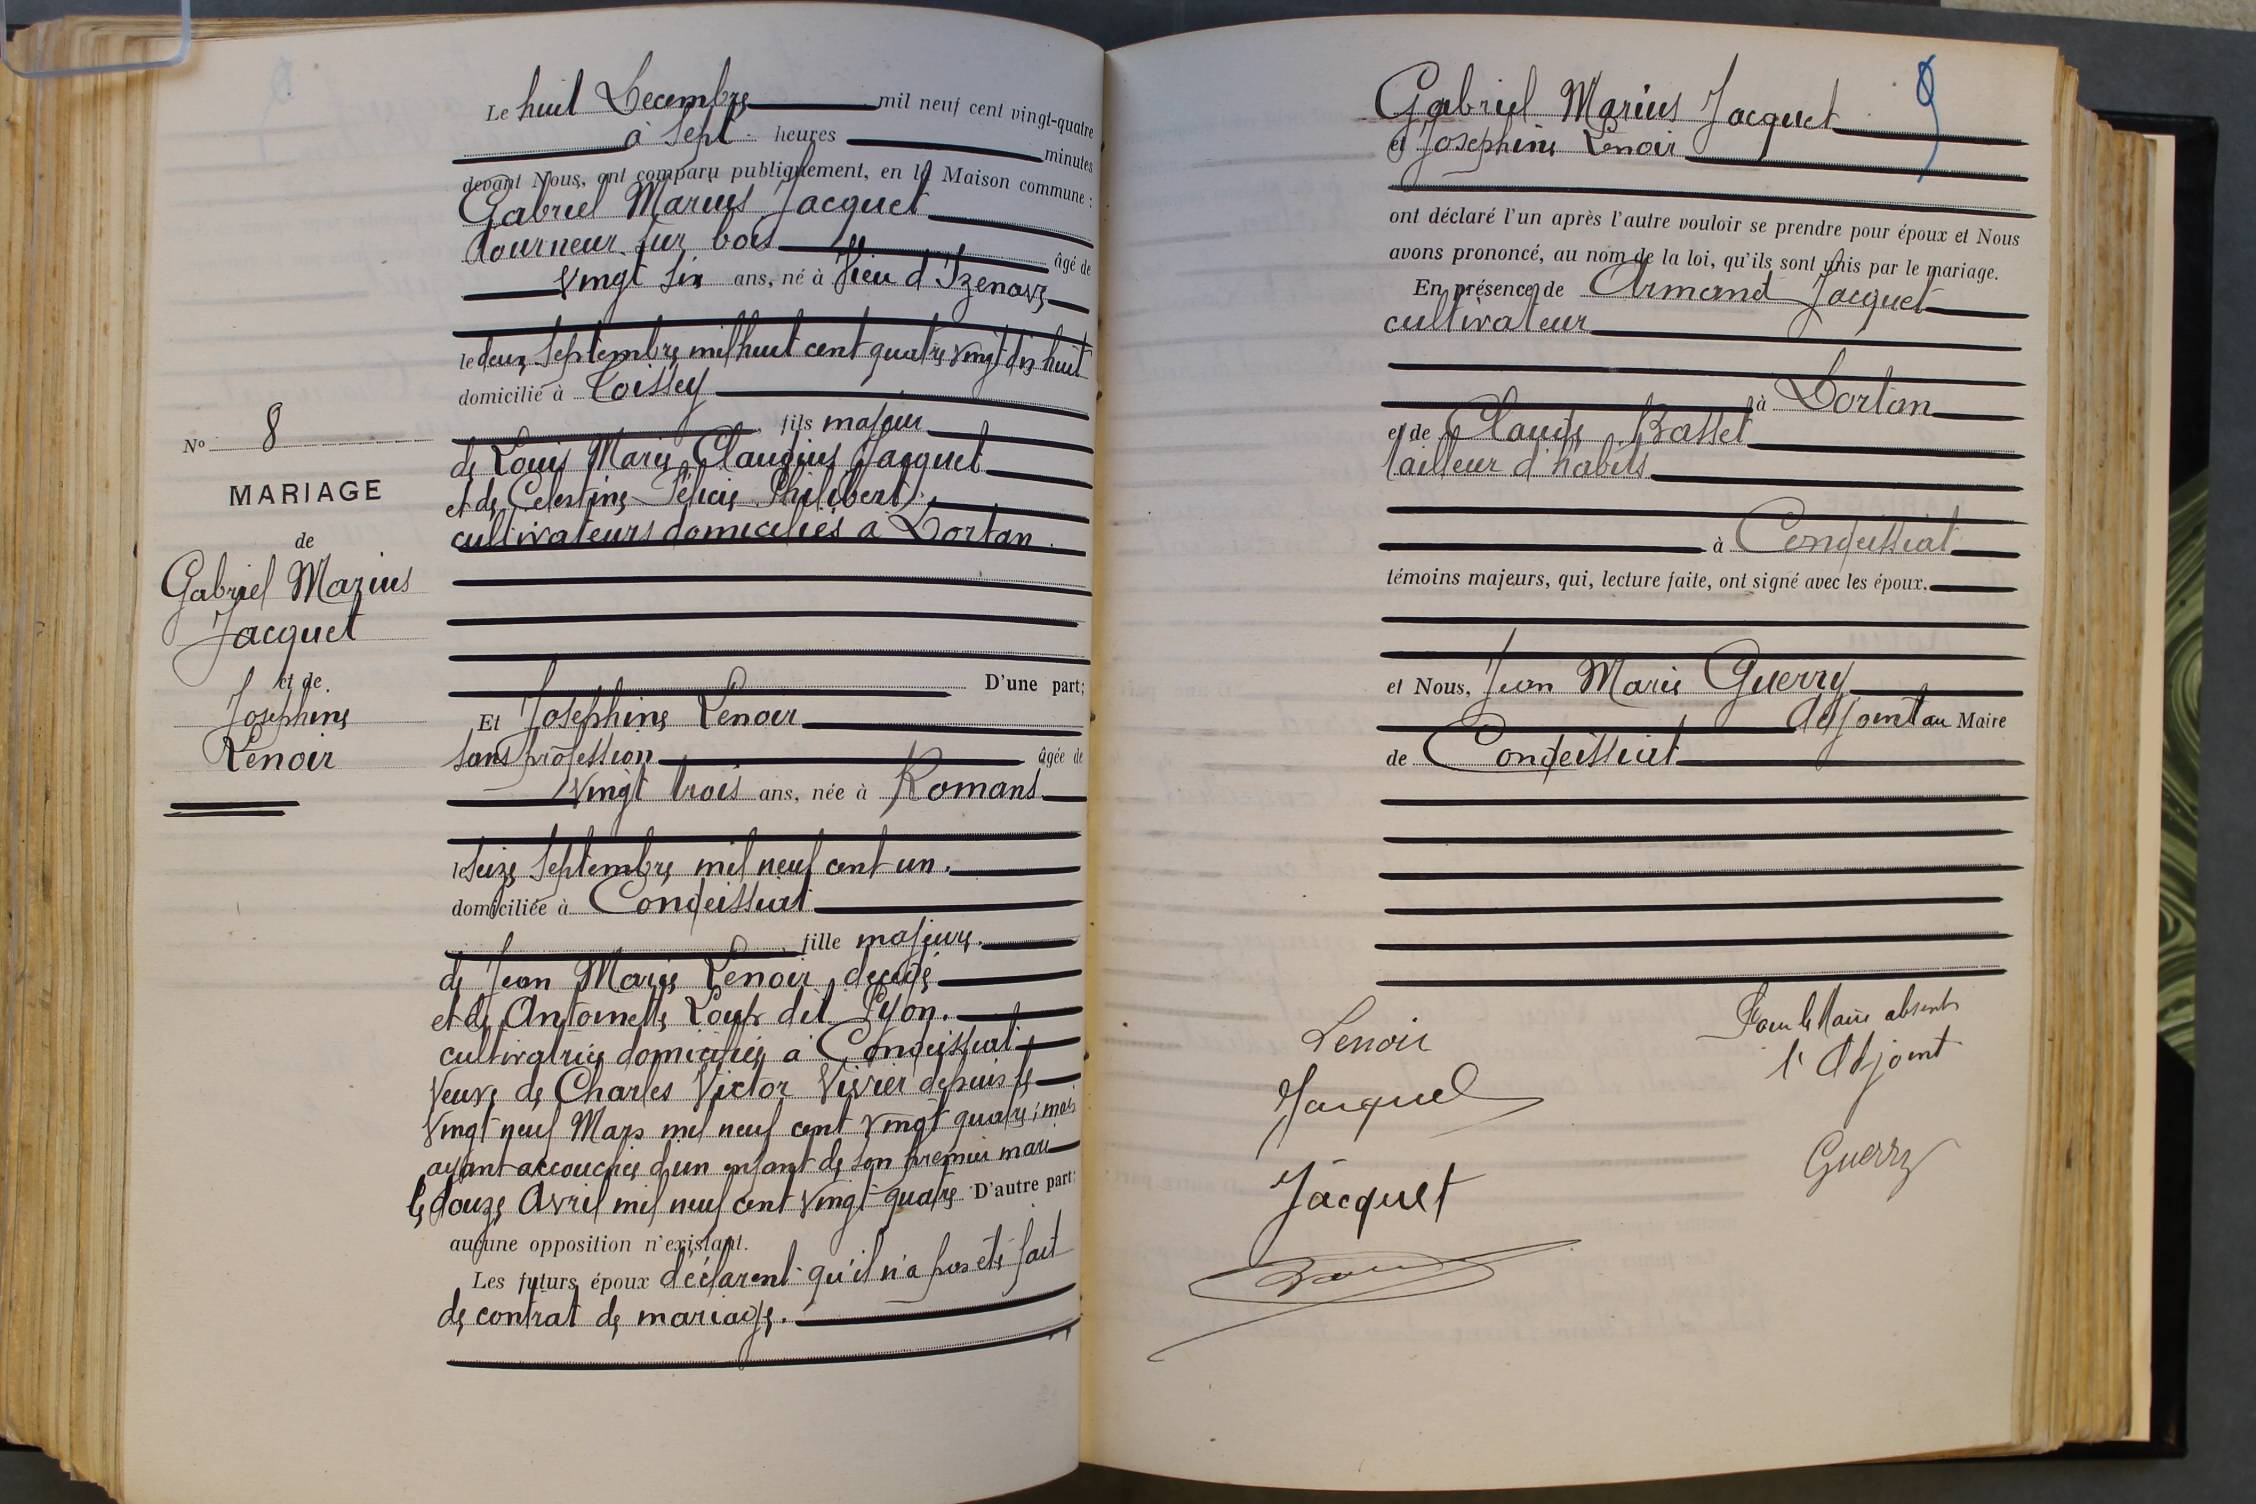 Le huit Decembre mil neuf cent vingt-quatre
à sept heures minutes
devant Nous, ont comparu publiquement, en la Maison commune :
Gabriel Marius Jacquet
tourneur sur bois âgé de
vingt six ans, né à Vieu d'Izenave
le deux septembre mil huit cent quatre vingt dix huit
domicilié à Toissey
fils majeur
de Louis Marie Claudius Jacquet
et de Celestine Félicie Philibert,
cultivateurs domiciliés à Dortan.
D'une part;
Et Josephine Lenoir
sans profession âgée de
vingt trois ans, née à Romans
le seize septembre mil neuf cent un.
domiciliée à Condeissiat
fille majeure.
de Jean Marie Lenoir, décédé
et de Antoinette Loup dit Lyon.
cultivatrice domiciliée à Condeissiat
veuve de Charles Victor Vivier depuis le
vingt neuf Mars mil neuf cent vingt quatre; mais
ayant accouchée d'un enfant de son premier mari
le douze Avril mil neuf cent vingt quatre D'autre part;
aucune opposition n'existant.
Les futurs époux déclarent qu'il n'a pas été fait
de contrat de mariage.
No 8
MARIAGE
de
Gabriel Marius
Jacquet
et de
Josephine
Lenoir
9
Gabriel Marius Jacquet
et Josephine Lenoir
ont déclaré l'un après l'autre vouloir se prendre pour époux et Nous
avons prononcé, au nom de la loi, qu'ils sont unis par le mariage.
En présence de Armand Jacquet
cultivateur
à Dortan
et de Claude Basset
tailleur d'habits
à Condeissiat
témoins majeurs, qui, lecture faite, ont signé avec les époux.
et Nous, Jean Marie Guerry
adjoint au Maire
de Condeissiat
Lenoir
Jacquet
Jacquet
Pour le Maire absent
l'Adjoint
Guerry